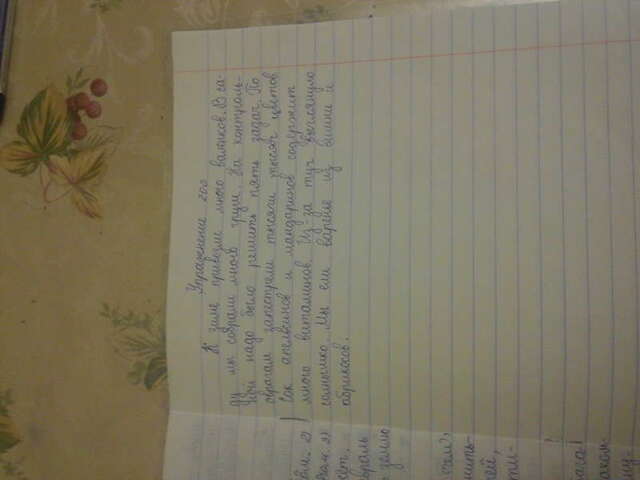 Упражнение 200
К зиме привезли много валенков. В са-
ду мы собрали много груш. На контроль-
ной надо было решить пять задач. По
оврагам запестрели тысячи тысяч цветов
Сок апельсинов и мандаринов содержит
много витаминов. Из-за туч выглянуло
солнышко. Мы ели варенье из вишни и
абрикосов.
2)
3)
евраль
землю
нить-
ти-